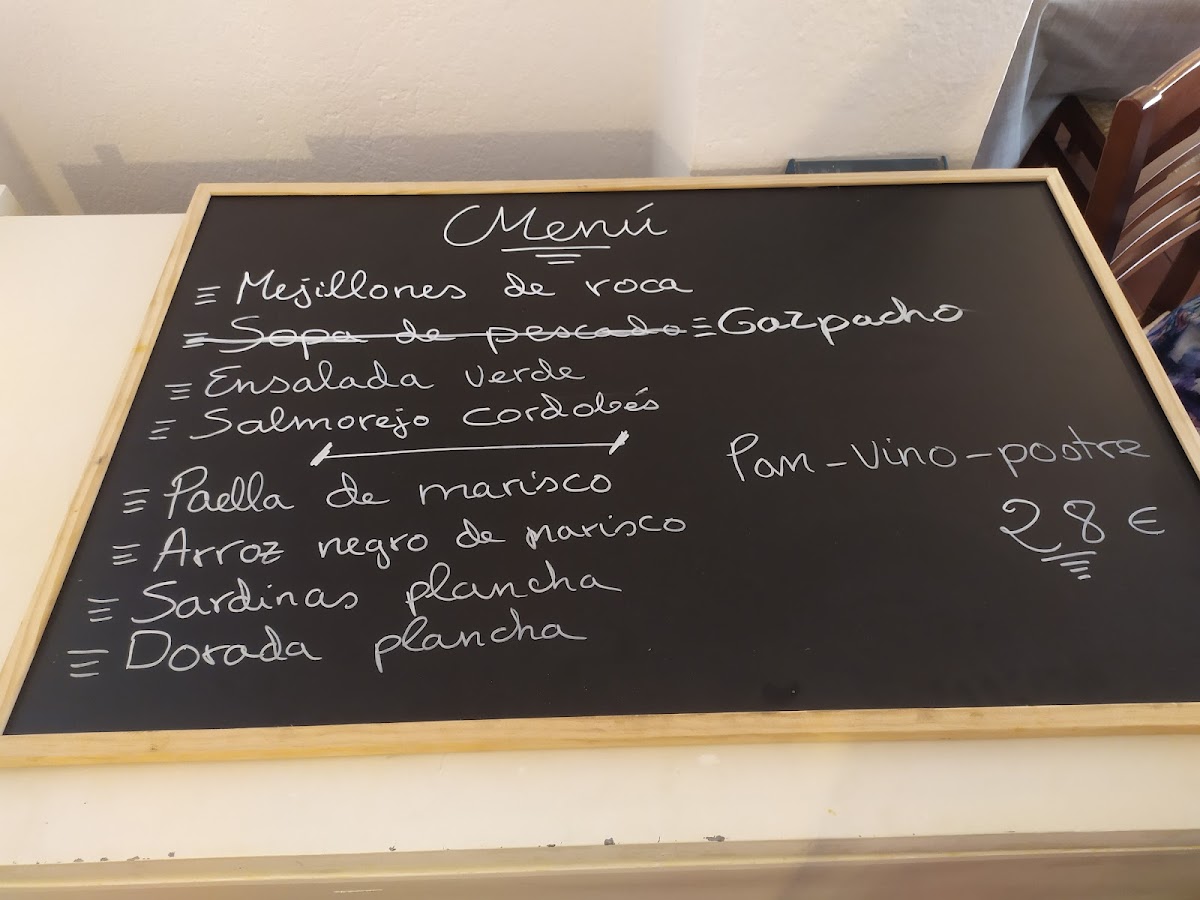 Menú
Mejillones de roca
Sopa de pescado Gazpacho
Ensalada verde
Salmorejo cordobés
Paella de marisco
Arroz negro de marisco
Sardinas plancha
Dorada plancha
Pan-vino-postre
28 €